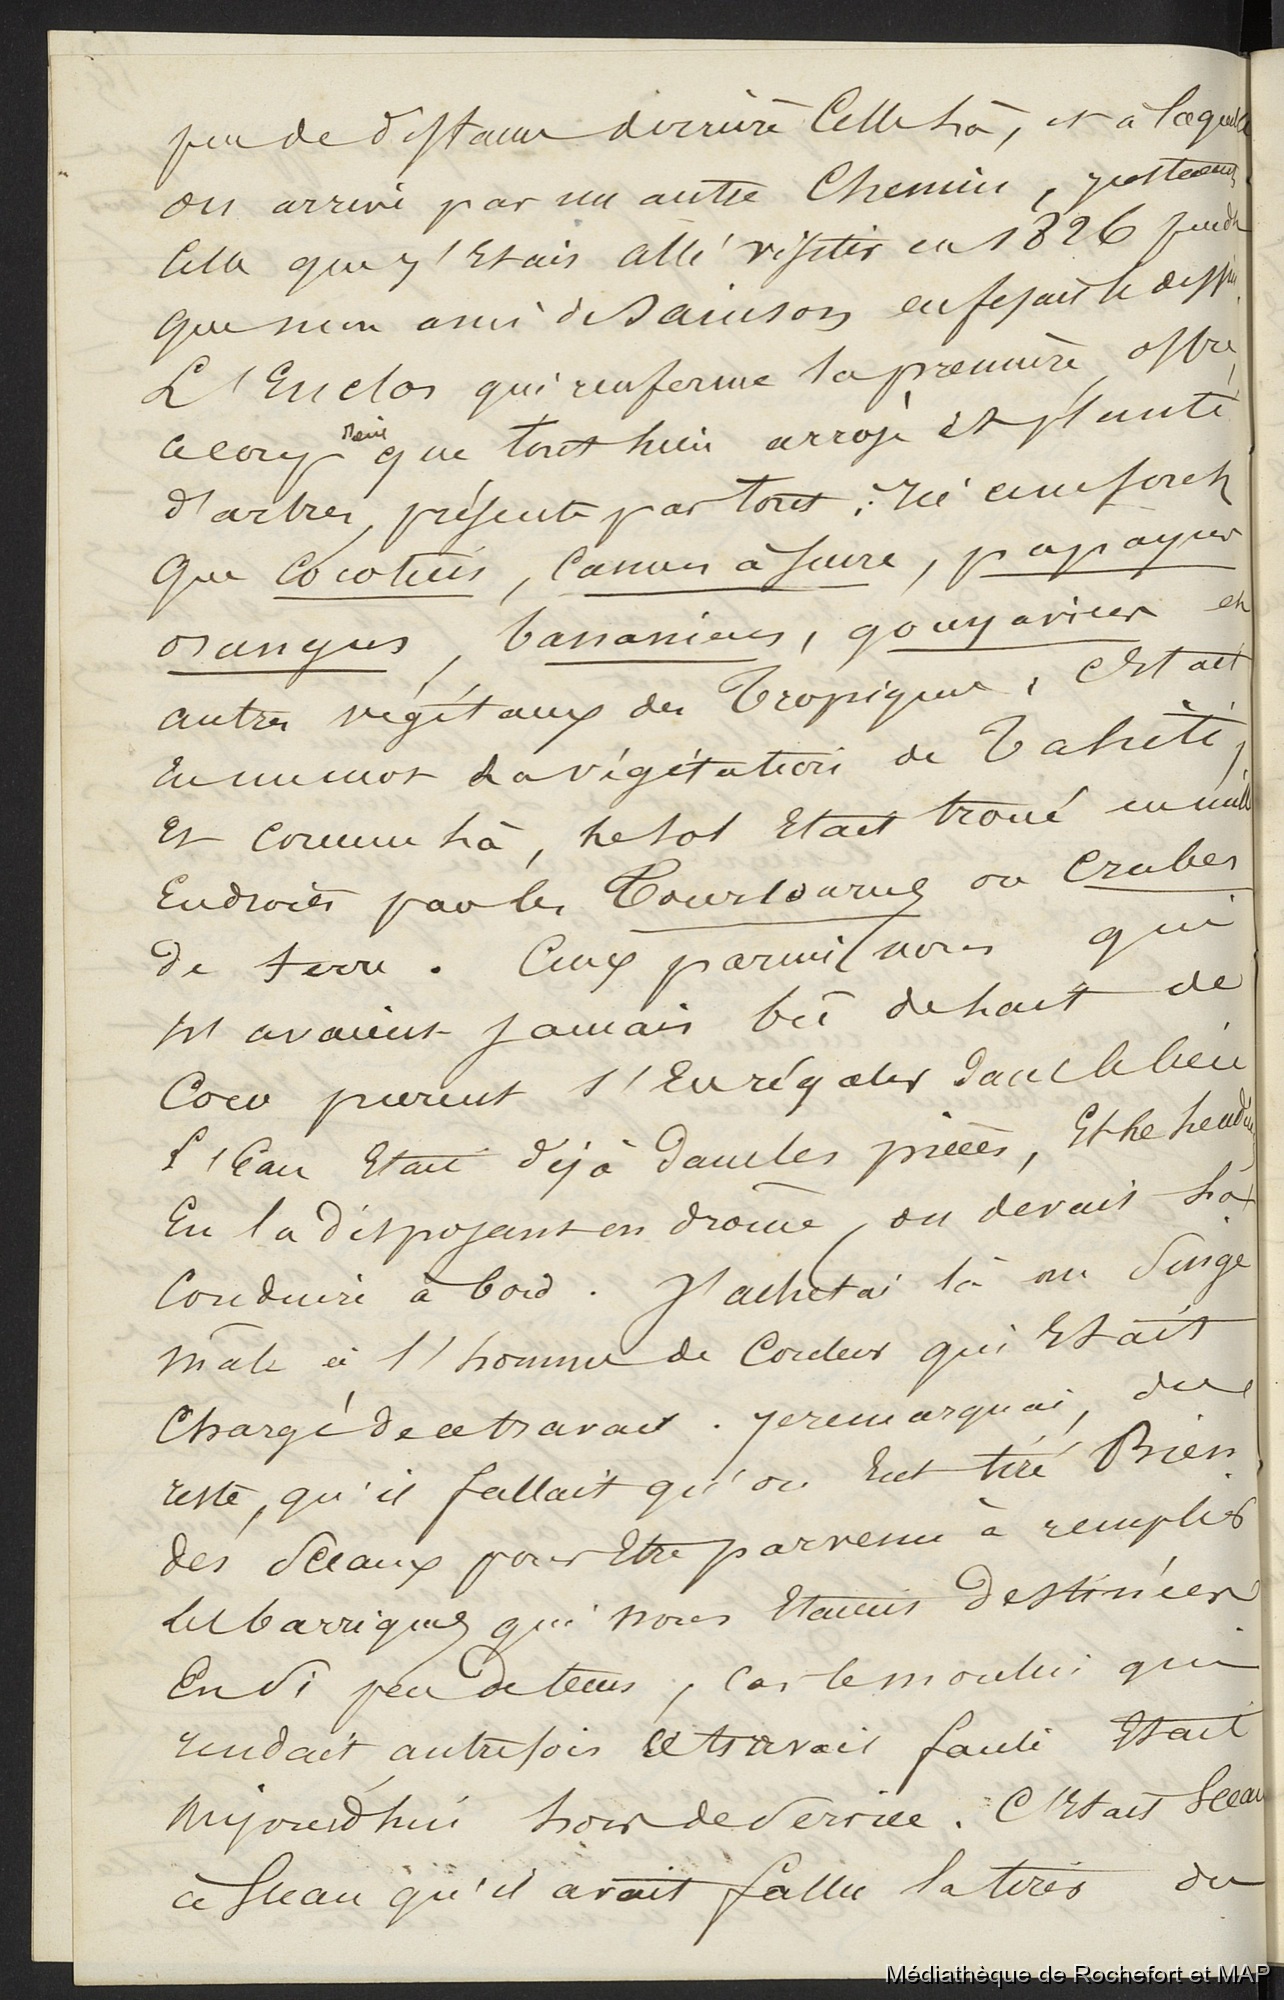 peu de distance derrière Celle là, et à laquelle
on arrive par un autre Chemin, justement
Celle que j'Etais allé visiter en 1826 pend
que mon ami de Sainson en fesait le dessin.
L'Enclos qui renferme la première, offre,
a coup que tout bien arrosé et planté
d'arbres, présente par tout;
que Cocotiers, Cannes à Sucre, papayers
orangers, bananiers, gouyaviers et
autres végétaux des Tropiques, c'Etait
En un mot La végétation de Tahiti,
Et comme là, le sol Etait troué en mille
Endroits par les Tourlouroux ou Crabes
de terre. Ceux parmi nous qui
n'avaient jamais bû de lait de
Coco purent s'En régaler dans le lieu
L'Eau Etait déjà dans les pièces, Et le lendn
En la disposant en drôme, on devait la
Conduire à bord. J'achetai là un Singe
mâle à l'homme de Couleur qui Etait
Chargé de ce travail. Je remarquai, du
reste, qu'il fallait qu'on Eut tiré Bien
des Sceaux pour Etre parvenu à remplir
les barriques qui nous Etaient Destinées
En Si peu de tems, car le moulin qui
rendait autrefois ce travail facile Etait
aujourd'hui hors de Service. C'Etait Sceau
à Sceau qu'il avait fallu la tirer du
Médiathèque de Rochefort et MAP